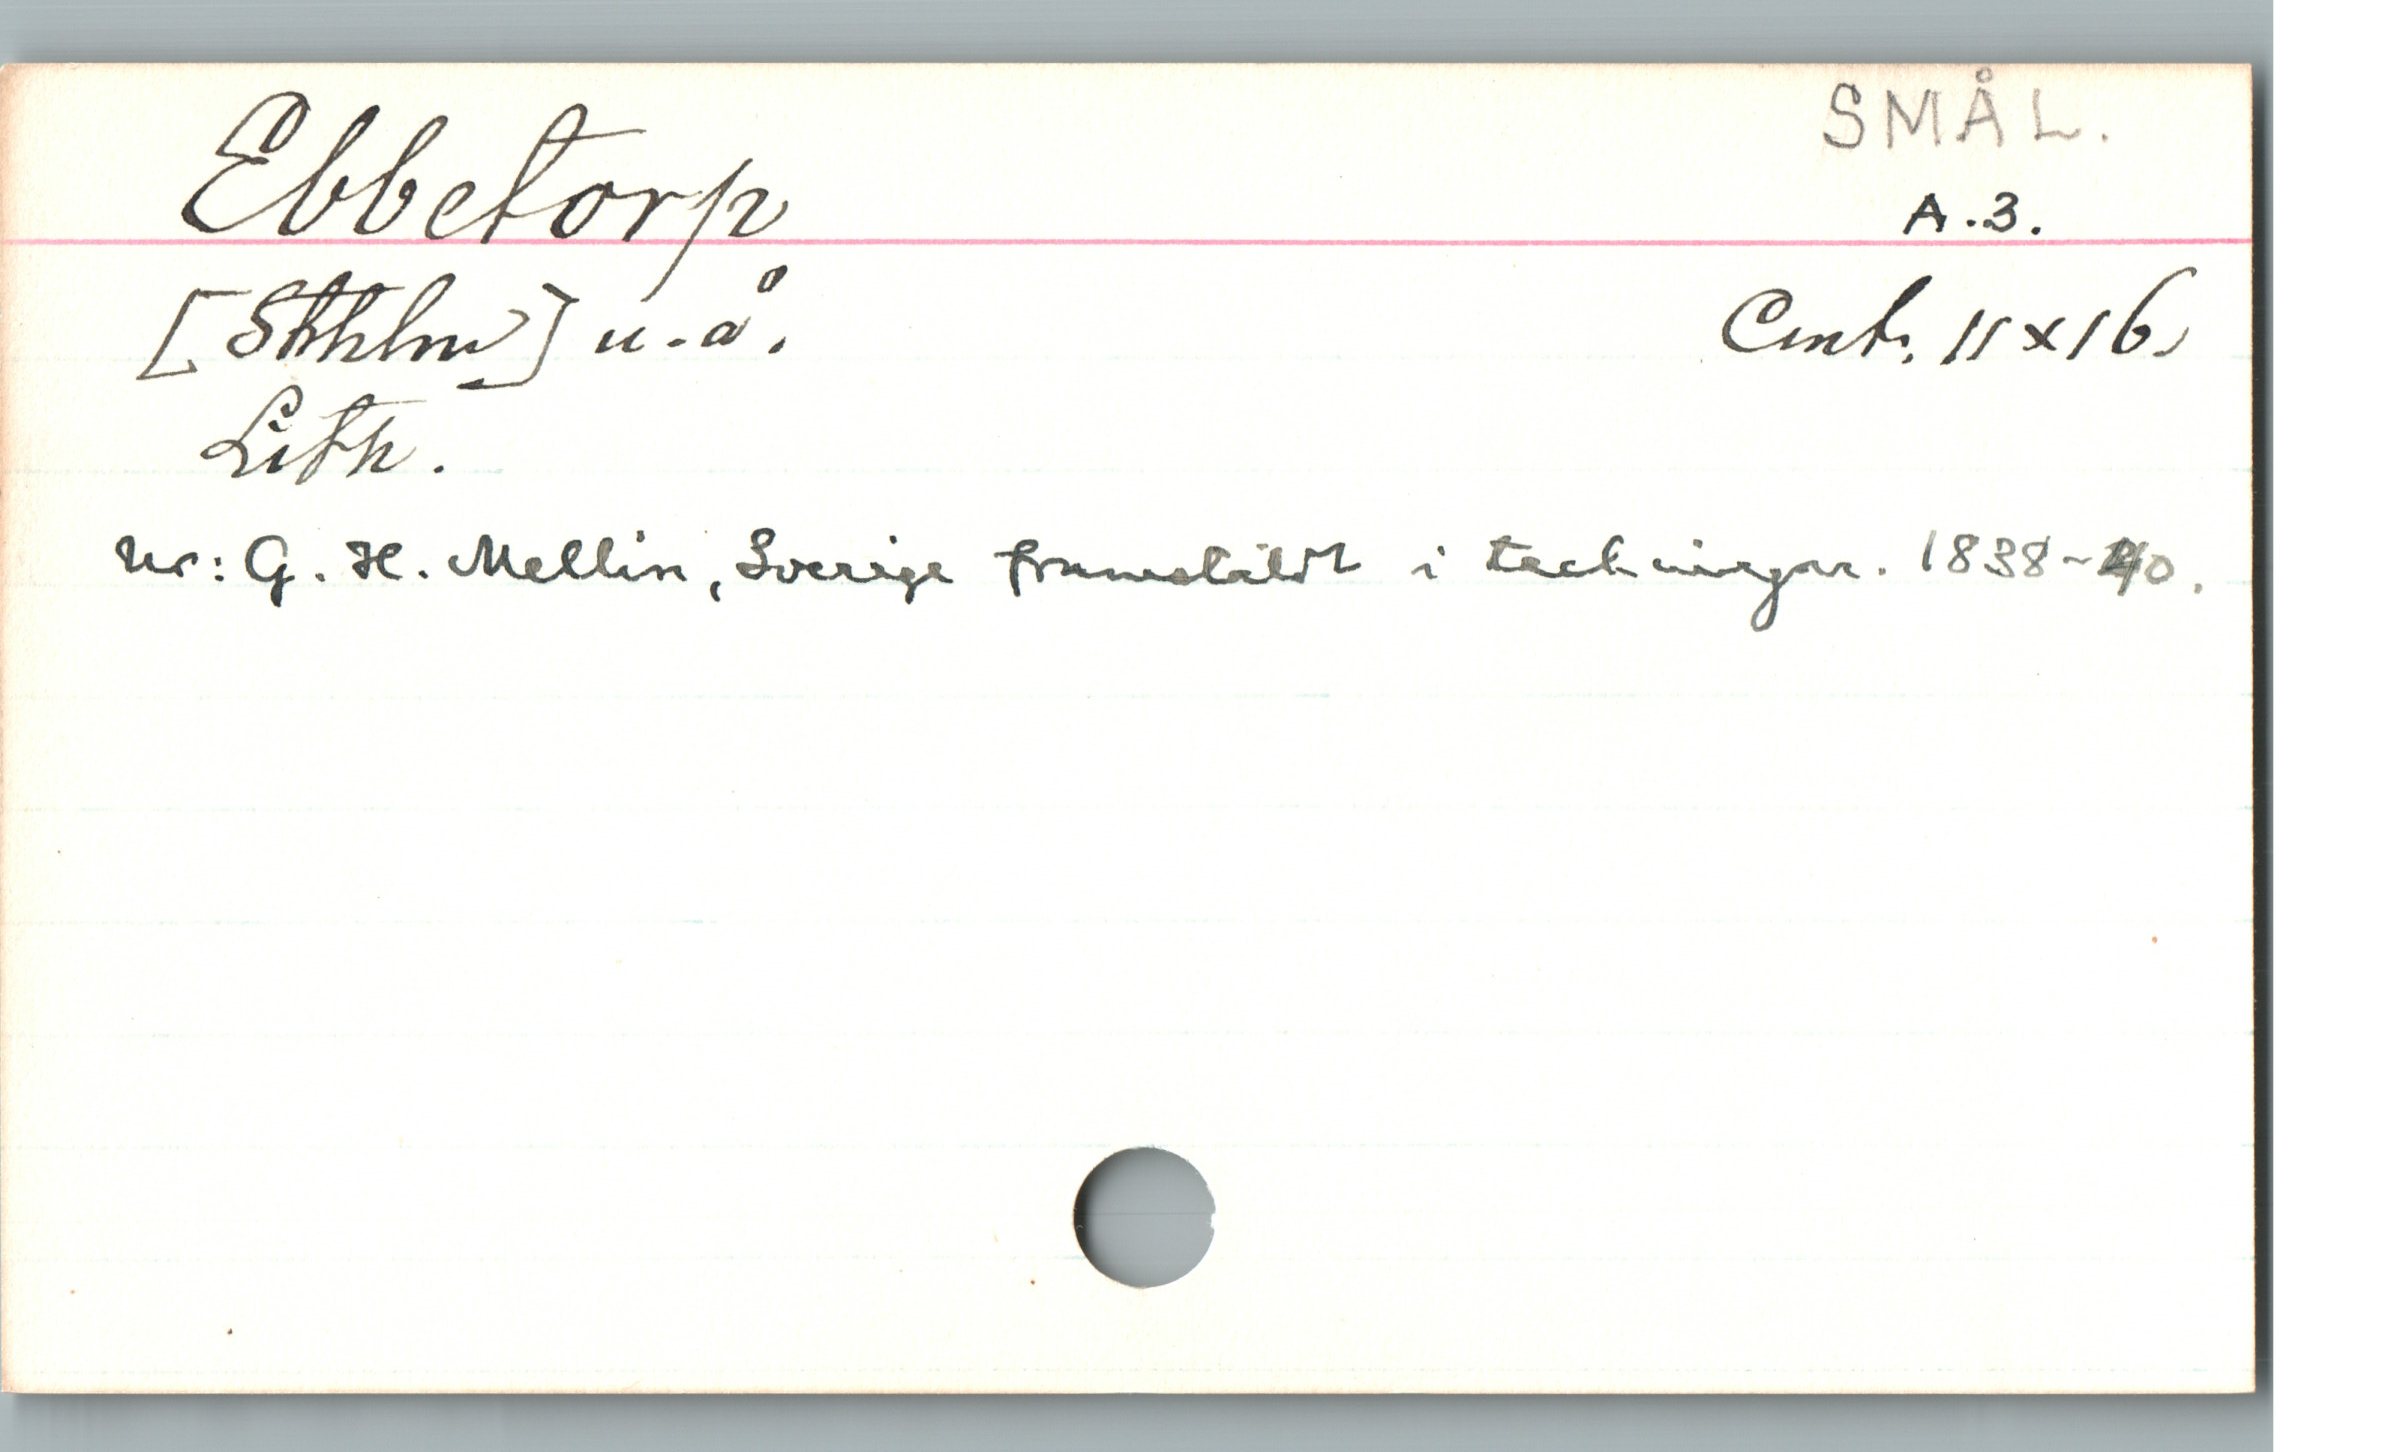 SMÅL.
Ebbetorp
A.3.
[Sthlm] u.å.
Cmt. 11x16.
Lith.
Ur: G. H. Mellin, Sverige framställdt i teckningar. 1838-40.